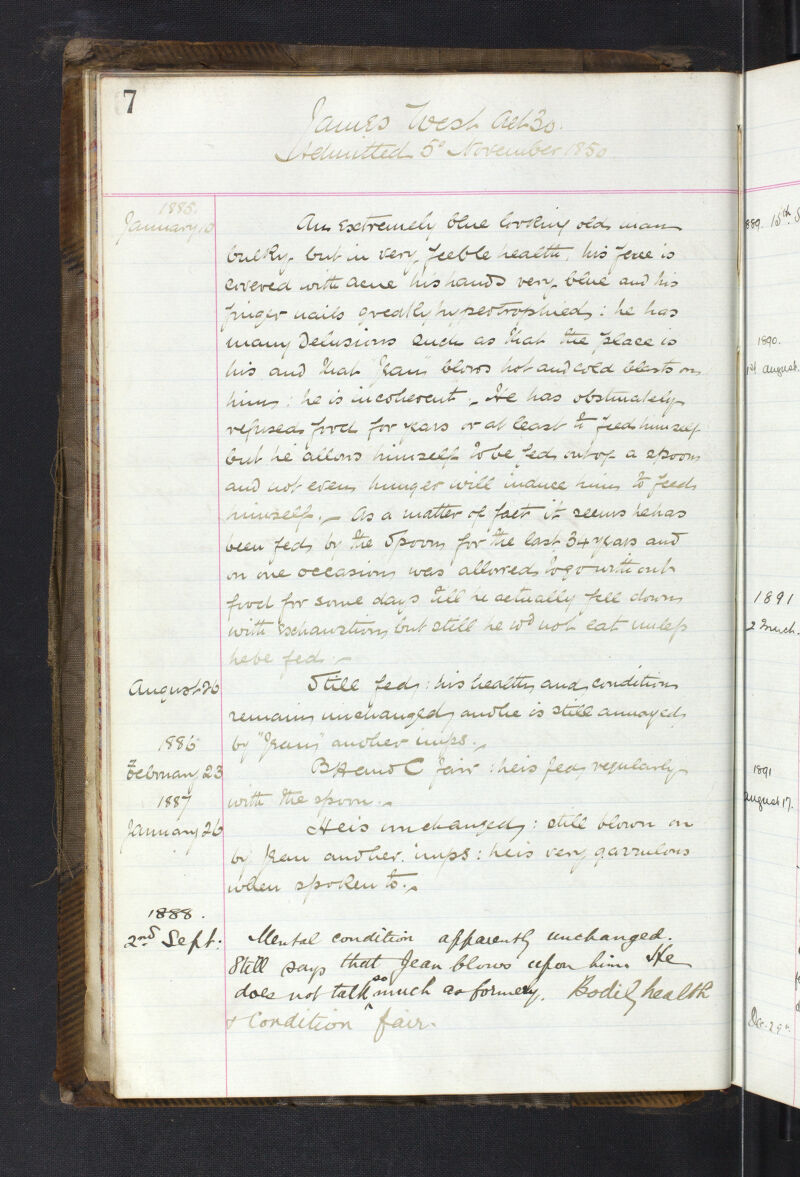 7
James West Aet 30.
Admitted 5º November 1850
1885.
January 10
An extremely blue looking old man
bulky, but in very feeble health, his face is
covered with acne his hands very blue and his
finger nails greatly hypertrophied: he has
many Delusions such as that the place is
his and that "Jean" blows hot and cold blasts on
him: he is incoherent. He has obstinately
refused food for years or at least to feed himself
but he allows himself to be fed out of a spoon
and not even hunger will induce him to feed
himself. As a matter of fact it seems he has
been fed by the Spoon for the last 34 years and
on one occasion was allowed to go without
food for some days till he actually fell down
with exhaustion but still he wd not eat unless
he be fed.
August 26
Still fed: his health and condition
remains unchanged, and he is still annoyed
by "Jean" and her imps.
1886
February 23
BH and C fair: he is fed regularly
with the spoon.
1887
January 26
He is unchanged: still blown on
by Jean and her imps: he is very garrulous
when spoken to.
1888.
2nd Sept:
Mental condition apparently unchanged.
Still says that Jean blows upon him. He
does not talk so much as formerly. Bodily health
& Condition fair.
889. 15th S
1890.
1st August.
1891
2 March.
1891
August 17.
Dec. 29th